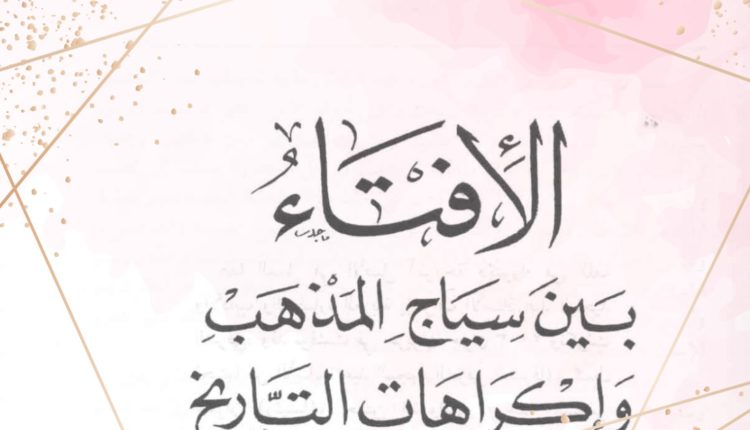 الإِفتَاءُ
بَينَ سِيَاجِ المَذْهَبْ
وَإِكْرَاهَاتِ التَّارِيخ